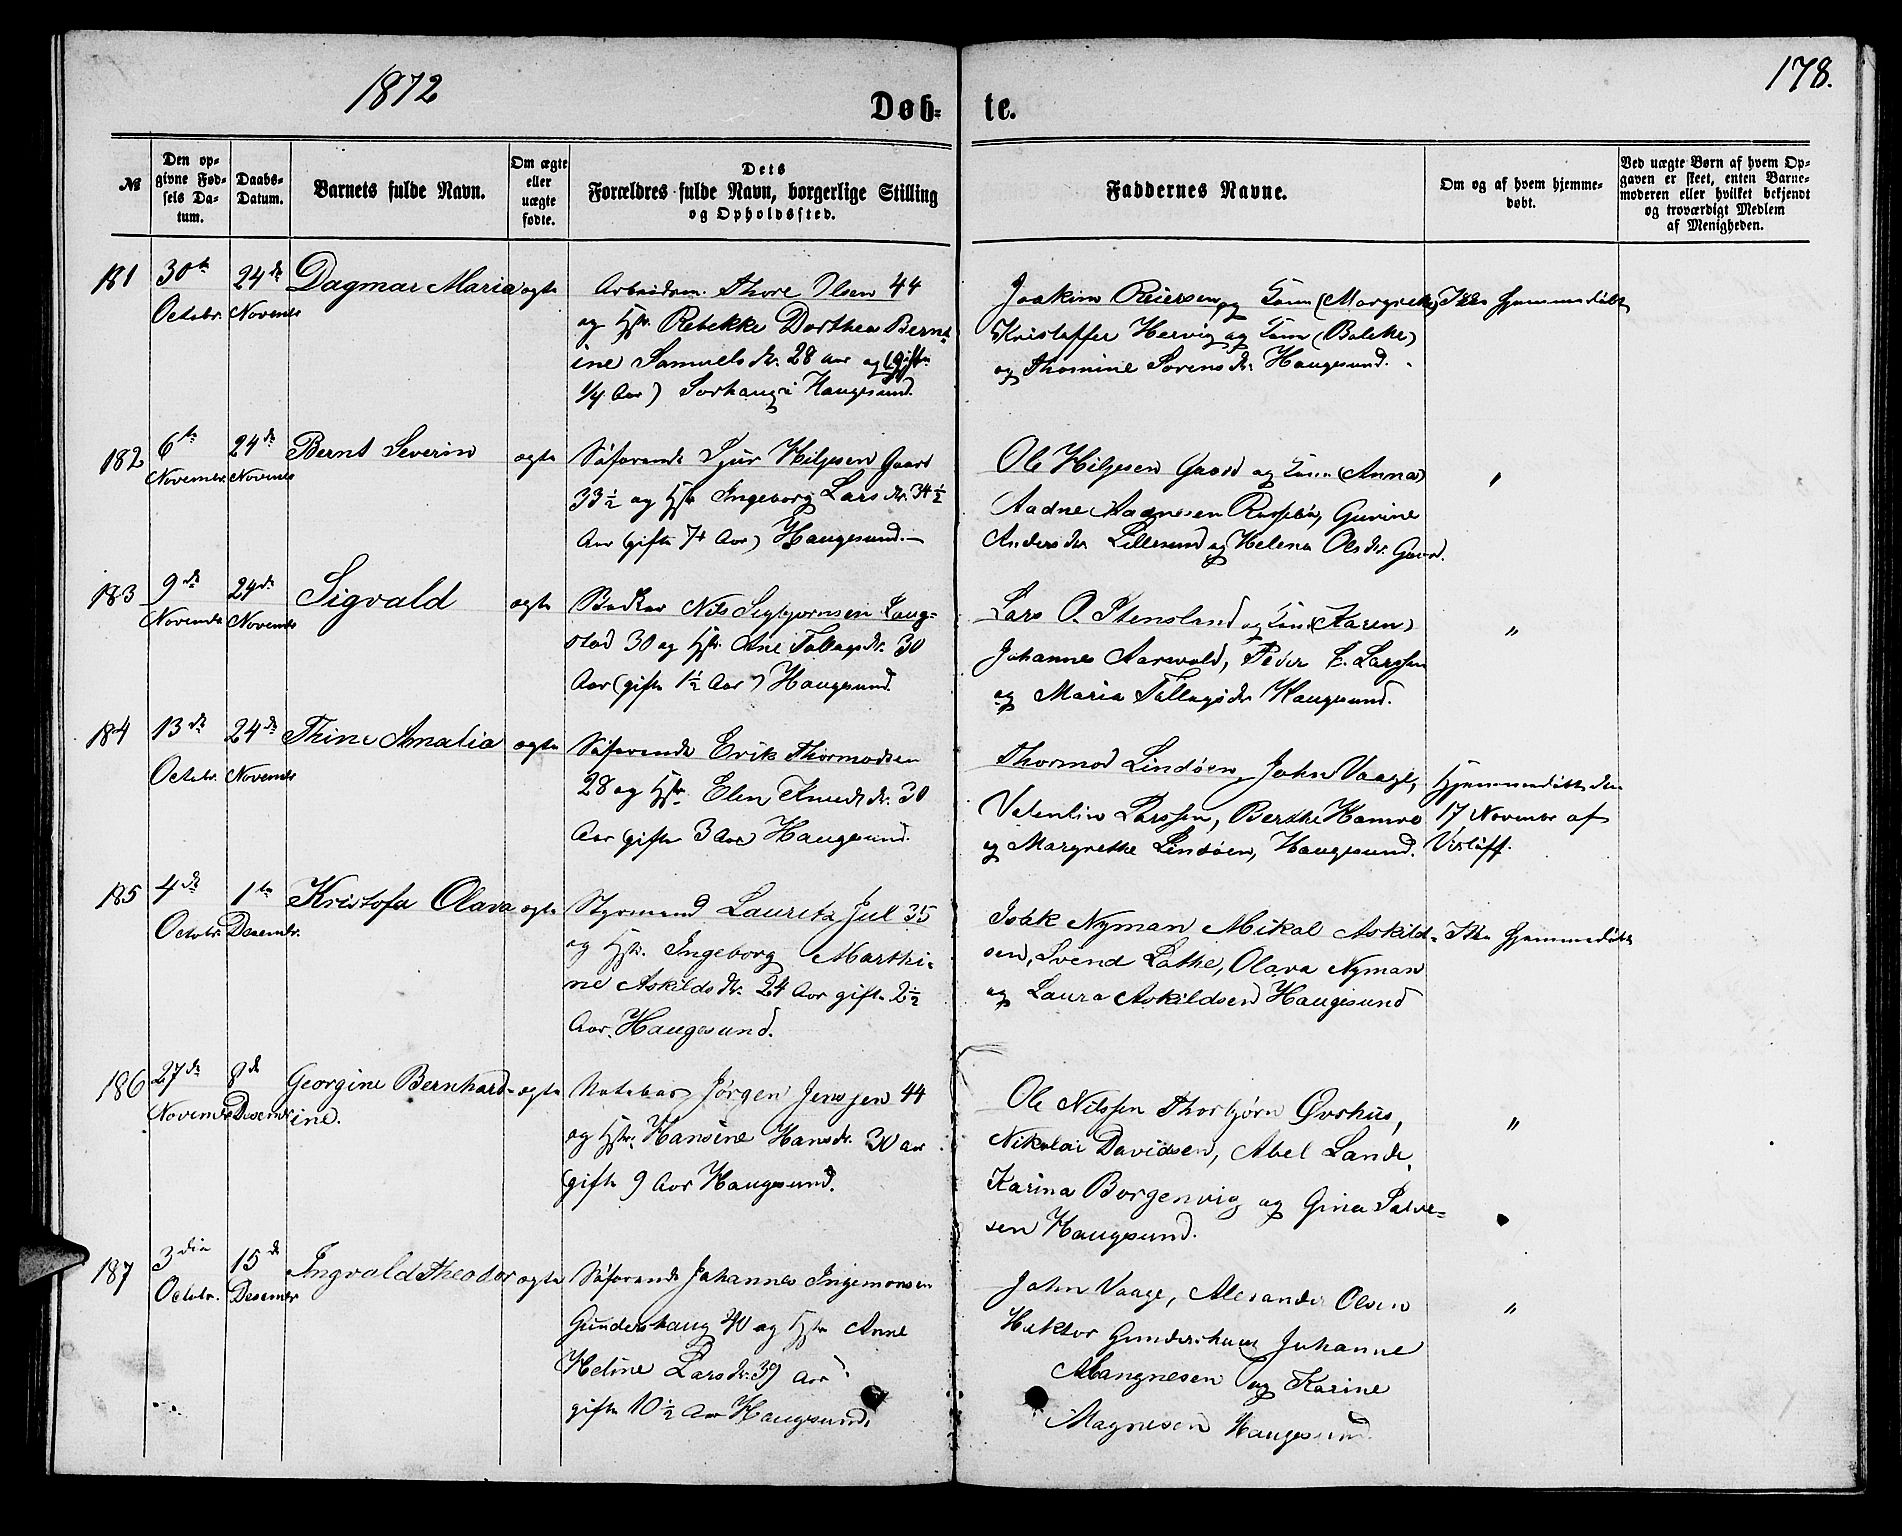 1872
178.
Døb-
te.
№
Den op-
givne Fød-
sels Da-
tum.
Daabs-
Datum.
Barnets fulde Navn.
Om ægte
eller
uægte
fødte.
Dets
Forældres fulde Navn, borgerlige Stilling
og Opholdssted.
Faddernes Navne.
Om og af hvem hjemme-
døbt.
Ved uægte Børn af hvem Op-
gaven er skeet, enten Barne-
moderen eller hvilket bekjendt
og troværdigt Medlem
af Menigheden.
181
30te
Octobr.
24de
Novembr
Dagmar Maria
ægte
Arbeidsm. Thore Olsen 44
og Hstr. Rebekke Dorthea Bernt-
ine Samuelsdr. 28 aar og (gifte
1/4 Aar) Sorhaug i Haugesund.
Joakim Reiersen og Kone (Margrethe)
Kristoffer Hervig og Kone (Bolette)
og Thomine Sorensdr. Haugesund.
Ikke hjemmedøbt
182
6te
Novembr.
24de
Novembr
Bernt Severin
ægte
Søfarende Sjur Kiljesen Gaard
33 1/2 og Hstr Ingeborg Larsdr. 34 1/2
Aar (gifte 7 Aar) Haugesund.
Ole Kiljesen Gaard og Kone (Anna)
Aadne Aadnesen Gurine
Andersdr. Lillesund og Helena Olsdr. Gaard.
"
183
9de
Novembr
24de
Novembr
Sigvald
ægte
Bødker Nils Sigbjørnsen Laug-
stad 30 og Hstr. Ane Tollagsdr. 30
Aar (gifte 1 1/2 Aar) Haugesund.
Lars O. Stensland og Kone (Karen)
Johannes Aarvold, Peder L. Larssen
og Maria Tollagsdr Haugesund.
"
184
13de
Octobr.
24de
Novembr
Thine Amalia
ægte
Søfarende Erik Thormodsen
28 og Hstr. Elen Knudsdr. 30
Aar (gifte 3 Aar Haugesund.
Thormod Lindøen, John Vaage,
Valentin Larssen, Berthe Hamre
og Margrethe Lindøen, Haugesund.
Hjemmedøbt den
17 Novembr af
185
4de
Octobr.
1te
Desembr.
Kristofa Olava
ægte
Styrmand Lauritz Jul 35
og Hstr. Ingeborg Marthi-
ne Askildsdr. 24 Aar gifte 2 1/2
Aar. Haugesund.
Isak Nyman Mikal Askild-
sen, Svend Lothe, Olava Nyman
og Laura Askildsen Haugesund
Ikke hjemmedøbt
186
27de
Novembr
8de
Desembr
Georgine Bernhard-
ine.
ægte
Notebas Jørgen Jenssen 44
og Hstr. Hansine Hansdr. 30 aar
(gifte 9 Aar Haugesund.
Ole Nilssen Thorbjørn Øvrhus,
Nikolai Davidsen, Abel Lande,
Karina Borgenvig og Gina Salve-
sen Haugesund.
"
187
3die
Octobr.
15de
Desembr
Ingvald Theodor
ægte
Søfarende Johannes Ingemonsen
Gundershaug 40 og Hstr Anne
Heline Larsdr. 39 Aar
gifte 10 1/2 Aar Haugesund.
John Vaage, Alexander Olsen
Hektor Gundershaug Johanne
Mangnesen og Karine
Magnesen Haugesund.
"